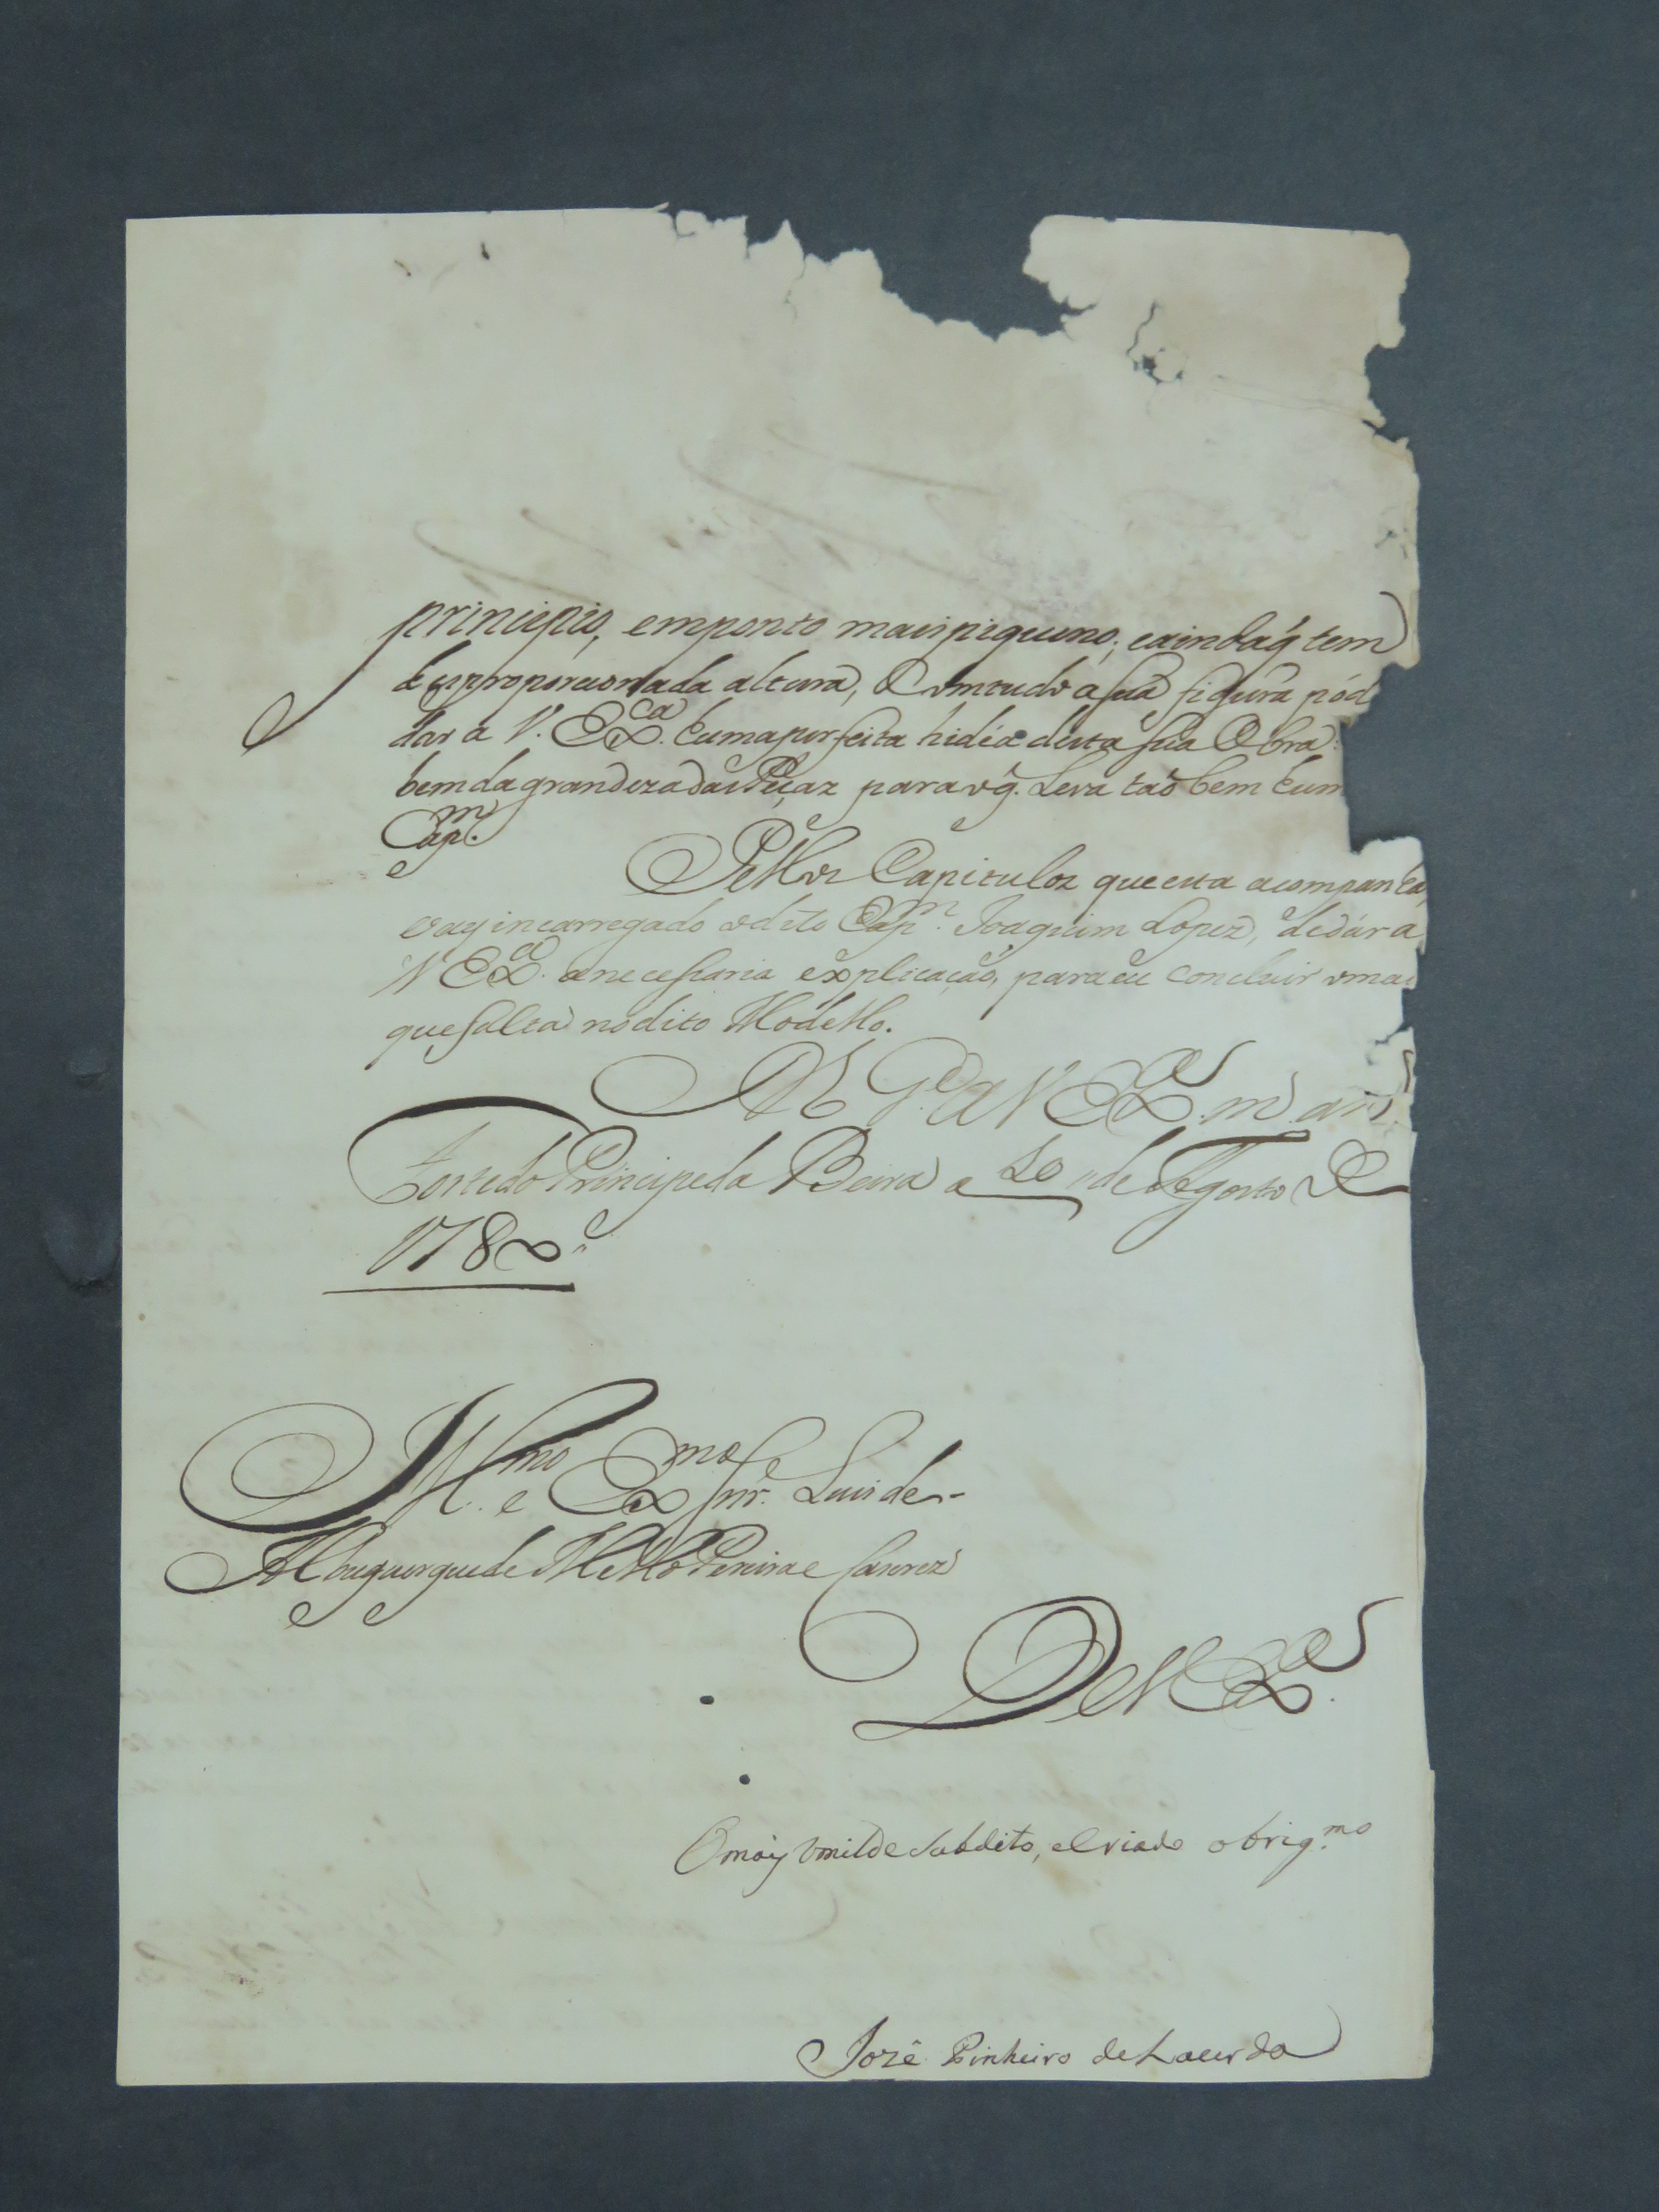 principio, emponto maispiqueno; eaindaq̃ tem
desproporcionada altura, Comtudo asua figura pód
dar a V. Ex.ca huma perfeita hidéa desta sua Obra:
bem da grandeza das Peçaz para oq̃. Leva taõ bem hum
Cap.m
Pellos Capituloz que esta acompanha,
vay incarregado odito Cap.m Joaquim Lopez, de dár a
V Ex.a a necessaria explicação, para eu concluir omais
que falta no dito Modello.
D.s G.de a V Ex.a m. an.s
Forte do Principe da Beira a 20 de Agosto de
178
Ill.mo e Ex.mo Snr. Luis de
Albuquerque de Mello Pereira e Caserez
De V Ex.a
O mayz vmilde Subdito, e Criado obrig.mo
Jozê Pinheiro de Lacerda